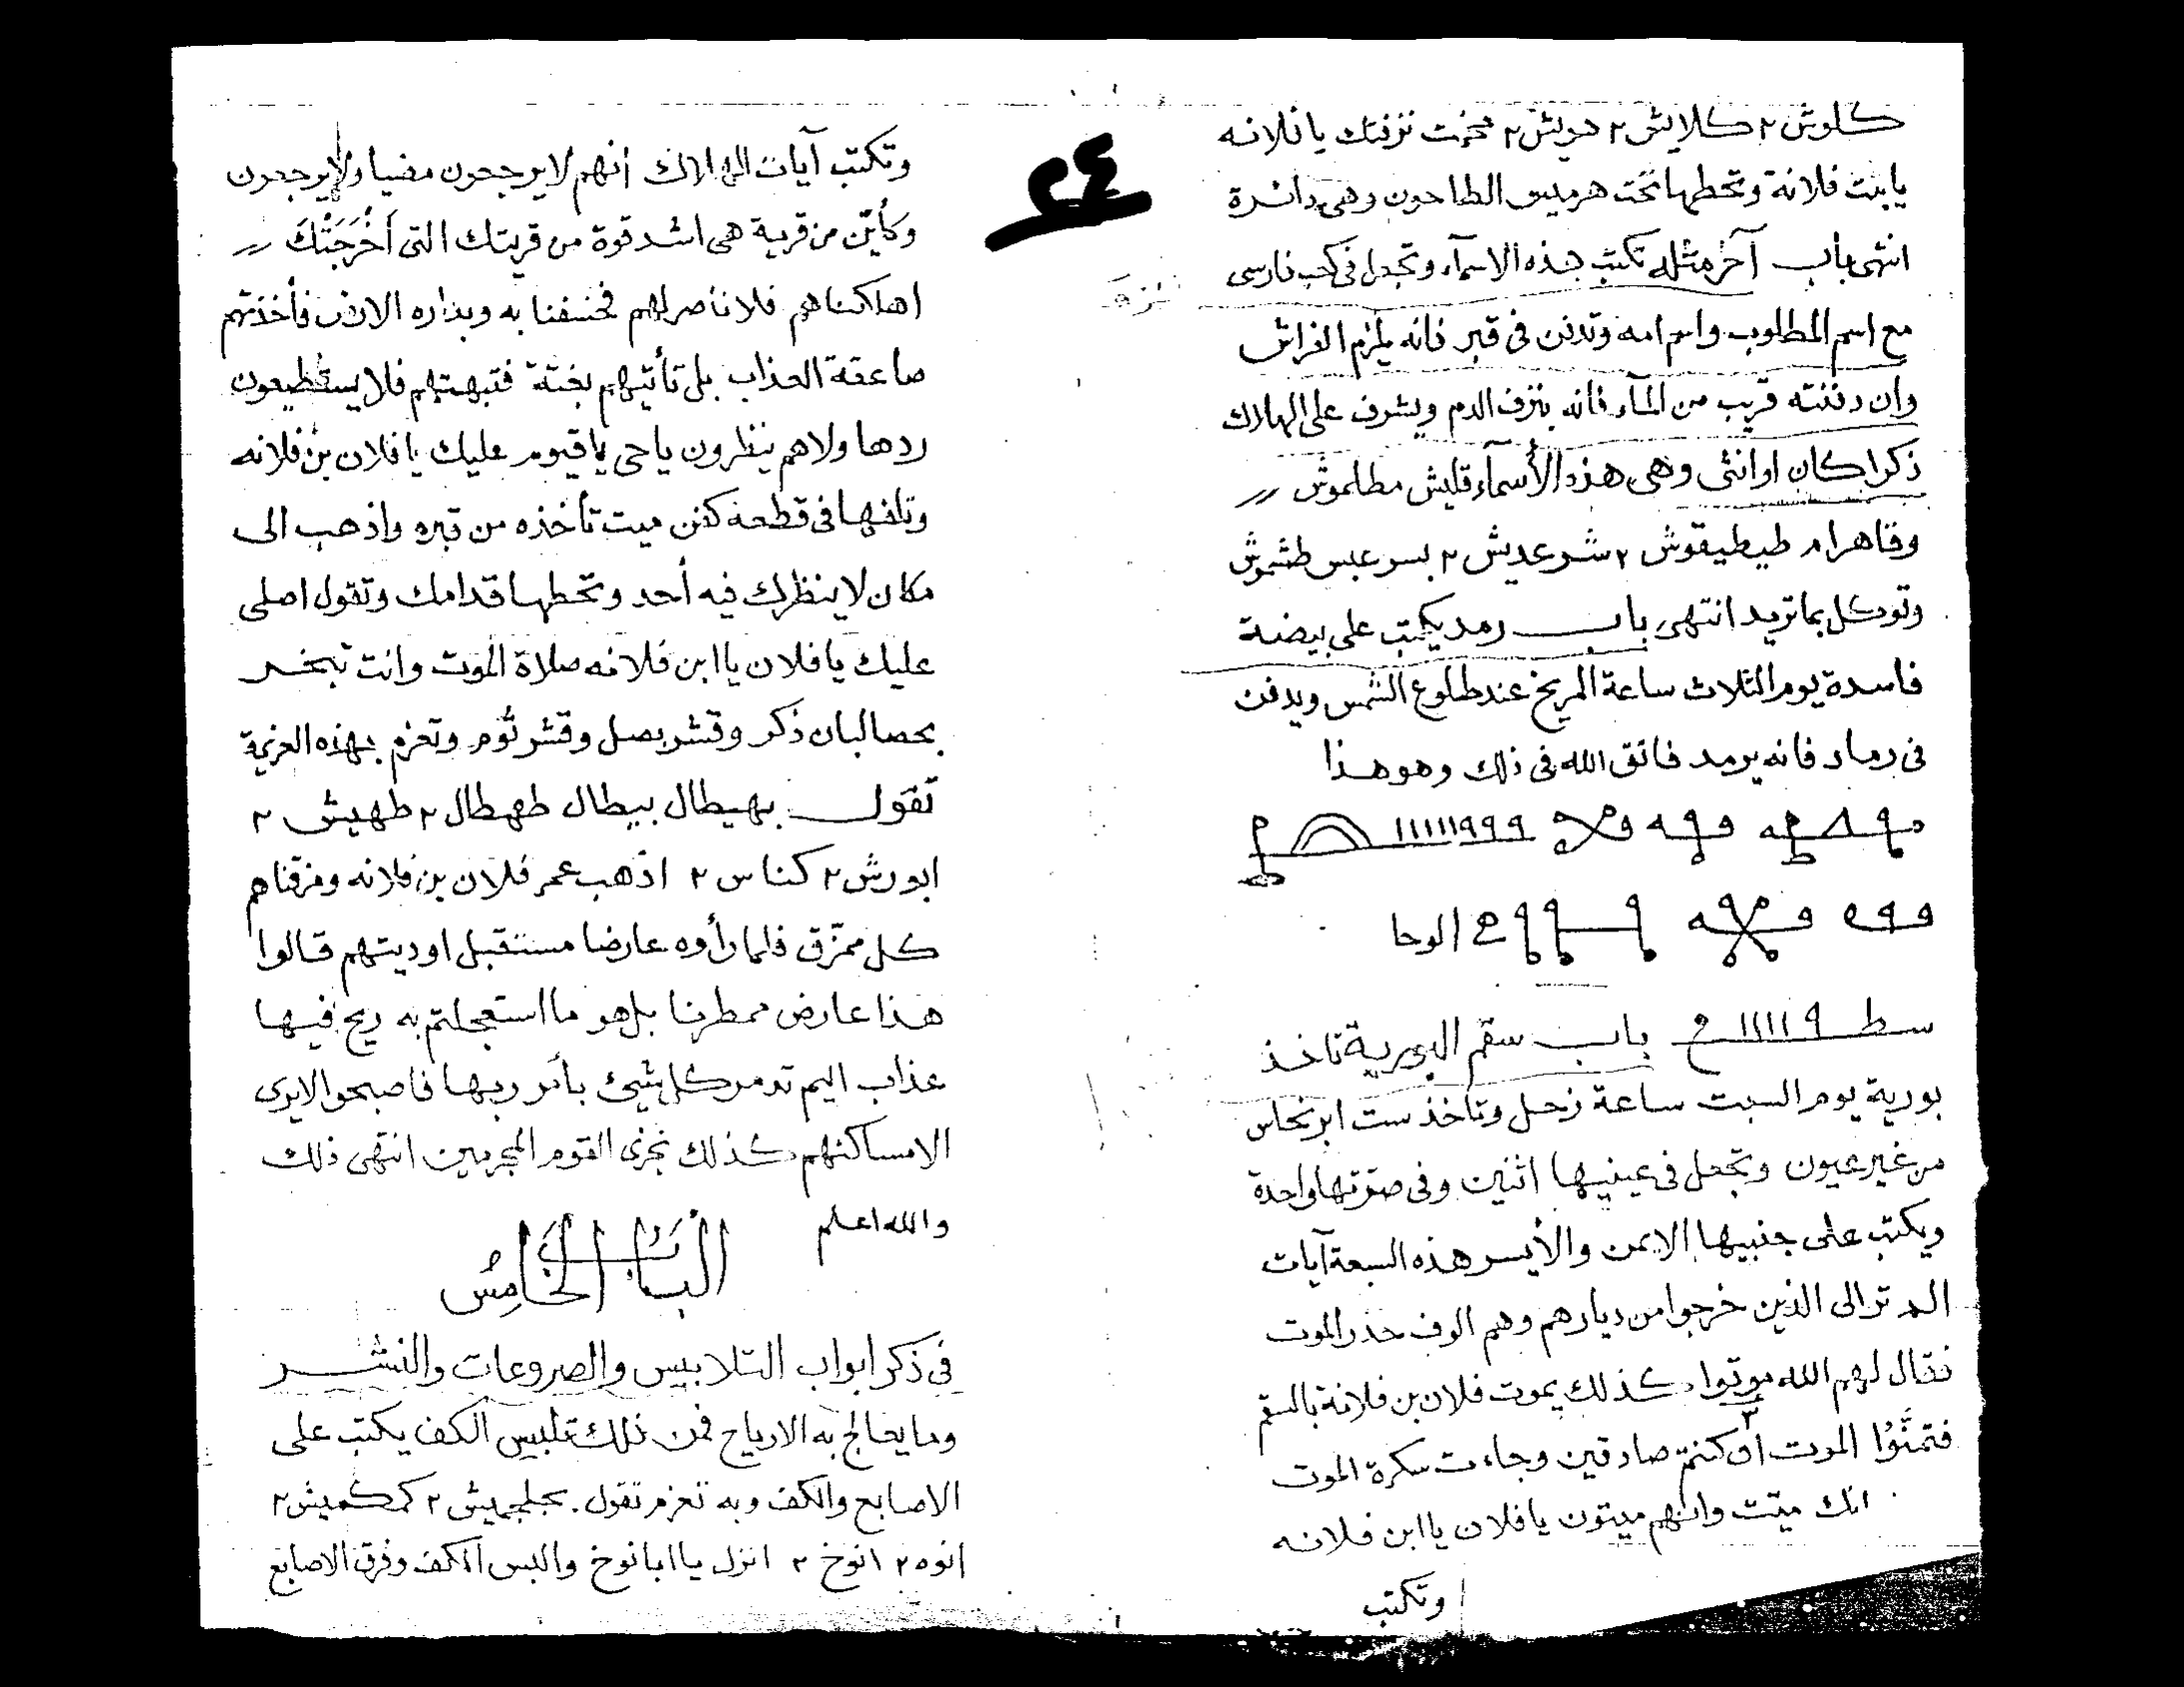 كلوش ٢ كلايش ٢ هويش ٢ نزفتك يا فلانه
يا بنت فلانة وتحطها تحت هرميس الطاحون وهى دائرة
انتهى باب آخر مثله تكتب هذه الاسمآء وتجعل فى كعب فارسى
مع اسم المطلوب واسم امه وتدفن فى قبر فانه يلزم الفراش
وان دفنته قريب من المآء فانه ينزف الدم ويشرف على الهلاك
ذكرا كان او انثى وهى هذه الأسمآء قليش مطلموش
وقاهرام طيطيقوش ٢ شرعديش ٢ بسر عبس طشموش
وتوكل بما تريد انتهى باب رمد يكتب على بيضة
فاسدة يوم الثلاث ساعة المريخ عند طلوع الشمس ويدفن
فى رماد فانه يرمد فاتق الله فى ذلك وهو هذا
الوحا
باب سقم البورية تاخذ
بورية يوم السبت ساعة زحل وتاخذ ست ابر نحاس
من غير عيون وتجعل فى عينيها اثنين وفى صرتها واحدة
ويكتب على جنبيها الايمن والأيسر هذه السبعة آيات
الم تر الى الذين خرجوا من ديارهم وهم الوف حذر الموت
فقال لهم الله موتوا كذلك يموت فلان بن فلانة بالسقم
فتمنَّوُا الموت ان كنتم صادقين وجاءت سكرة الموت
انك ميت وانهم ميتون يا فلان يا ابن فلانه
وتكتب
٢٤
وتكتب آيات الهلاك أنهم لا يرجعون مضيا ولا يرجعون
وكأيّن من قرية هى اشد قوة من قريتك التى أَخْرَجَتْكَ
اهلكناهم فلا ناصر لهم فخسفنا به وبداره الارض فأخذتهم
صاعقة العذاب بل تأتيهم بغتة فتبهتهم فلا يستطيعون
ردها ولا هم ينظرون يا حى يا قيوم عليك يا فلان بن فلانه
وتلفها فى قطعة كفن ميت تأخذه من قبره واذهب الى
مكان لا ينظرك فيه أحد وتحطها قدامك وتقول اصلى
عليك يا فلان يا ابن فلانه صلاة الموت وانت تبخر
بحصالبان ذكر وقشر بصل وقشر ثوم وتعزم بهذه العزيمة
تقول بهيطال بيطال طهطال ٢ طهيش ٢
ابورش ٢ كناس ٢ اذهب عمر فلان بن فلانه ومزقناهم
كل ممزّق فلما رأوه عارضا مستقبل اوديتهم قالوا
هذا عارض ممطرنا بل هو ما استعجلتم به ريح فيها
عذاب اليم تدمر كل شيئ بأمر ربها فاصبحوا لا يرى
الا مساكنهم كذلك نجزى القوم المجرمين انتهى ذلك
والله اعلم
الباب الخامس
فى ذكر ابواب التلابيس والصروعات والنشر
وما يعالج به الارياح فمن ذلك تلبيس الكف يكتب على
الاصابع والكف وبه تعزم تقول بجلجميش ٢ كمكميش ٢
انوه ٢ انوخ ٢ انزل يا ابا نوخ والبس الكف وفرق الاصابع